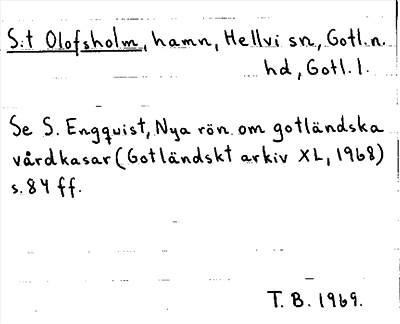 S:t Olofsholm, hamn, Hellvi sn, Gotl. n.
hd, Gotl. l.
Se S. Engquist, Nya rön om gotländska
vårdkasar (Gotländskt arkiv XL, 1968)
s. 84 ff.
T. B. 1969.